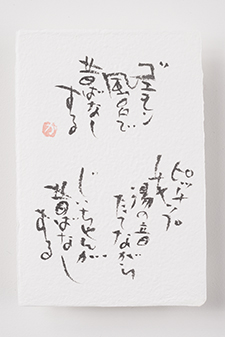 ゴエモン
風呂で
昔ばなし
する
ピッチャン
湯の音
たてながら
じいちゃんが
昔ばなし
する